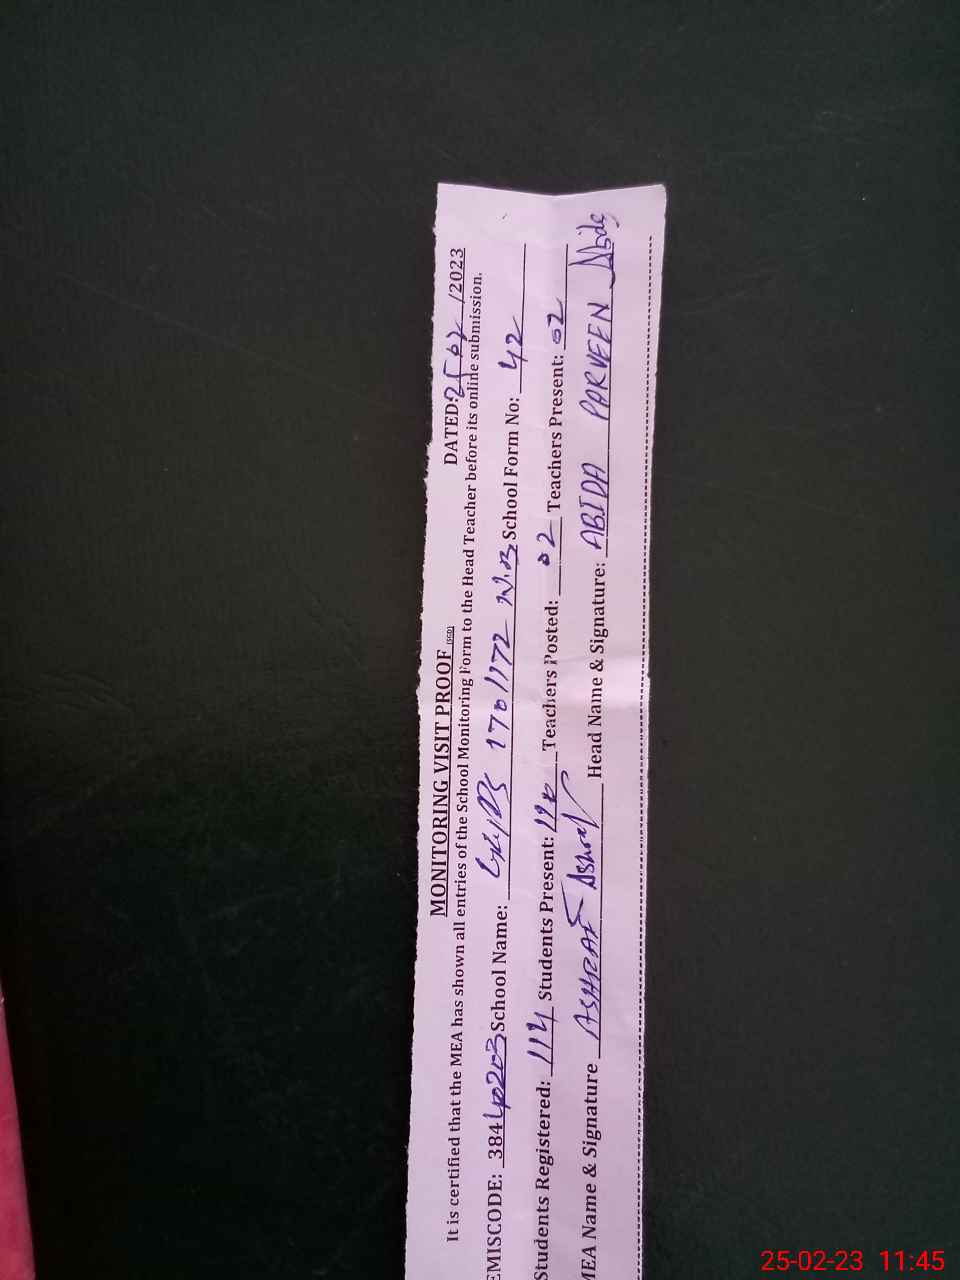 MONITORING VISIT PROOF (SED) DATED: 25/02/2023
It is certified that the MEA has shown all entries of the School Monitoring Form to the Head Teacher before its online submission.
EMISCODE: 38440203 School Name: School Form No: 42
Students Registered: 114 Students Present: Teachers Posted: 02 Teachers Present: 02
MEA Name & Signature ASHRAF Ashraf Head Name & Signature: ABIDA PARVEEN Abida
25-02-23 11:45